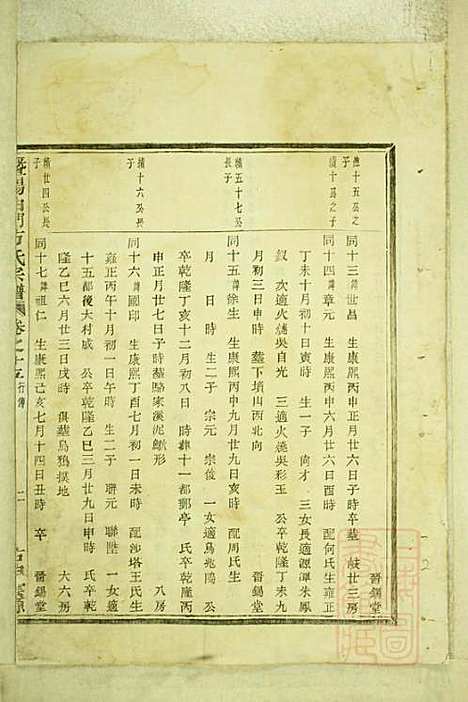 晉錫堂
同十三諱世昌 生康熙丙申正月廿六日子時卒墓 缺廿三房
同十四諱章元 生康熙丙申六月廿六日酉時 配何氏生雍正
丁未十月初十日寅時 生一子 尚才 三女長適源潭朱鳳
釵 次適火燒吳自光 三適火燒吳彩玉 公卒乾隆丁未九
月初三日申時 墓下墳山西北向 晉錫堂
同十五諱徐生 生康熙丙申九月廿九日亥時 配周氏生
月 日 時 生二子 宗元 宗俊 一女適烏兆陽 公
卒乾隆丁亥十二月初八日 時葬十一都鄭亭 氏卒乾隆丙
申正月廿七日子時墓陽家溪泥鰍形 八房
同十六諱國印 生康熙丁酉七月初一日未時 配沙塔王氏生
雍正丙午十月初一日午時 生二子 聯元 聯陞 一女適
十五都後大村戚 公卒乾隆乙巳三月廿九日申時 氏卒乾
隆乙巳六月廿三日戌時 俱墓烏鴉撲地 大六房
同十七諱祖仁 生康熙己亥七月十四日丑時 卒
精十六公長子
精廿四公長子
精五十七公長子
氏宗譜 卷之十五 行傳